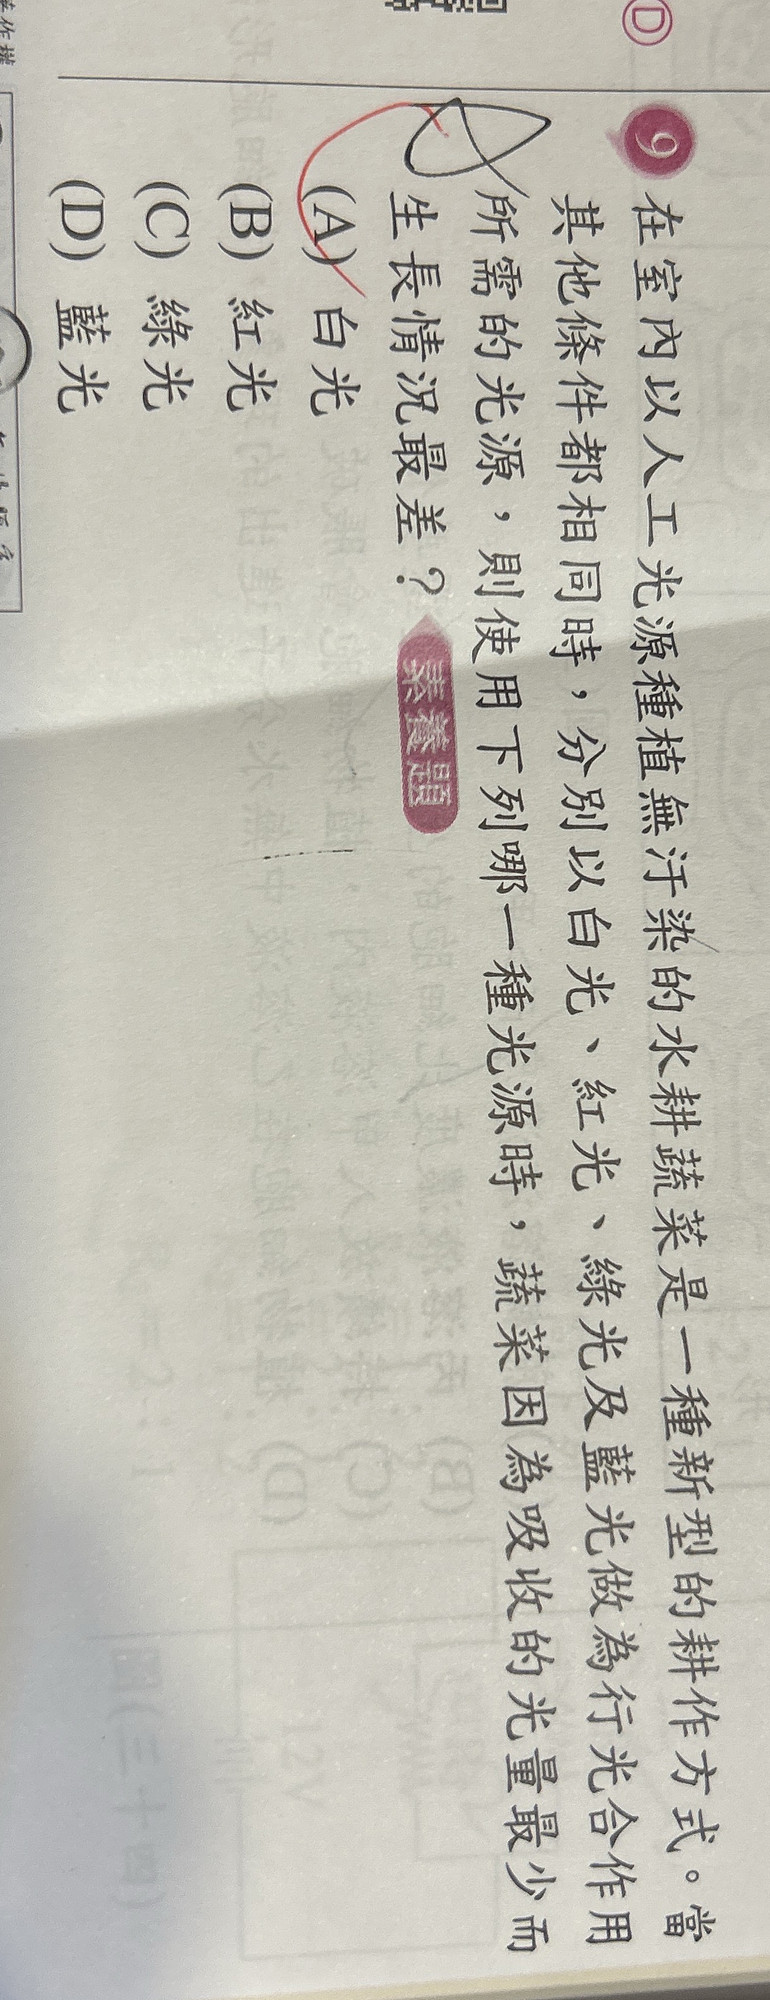 D
9 在室內以人工光源種植無汙染的水耕蔬菜是一種新型的耕作方式。當
其他條件都相同時，分別以白光、紅光、綠光及藍光做為行光合作用
所需的光源，則使用下列哪一種光源時，蔬菜因為吸收的光量最少而
生長情況最差？ 素養題
(A) 白光
(B) 紅光
(C) 綠光
(D) 藍光